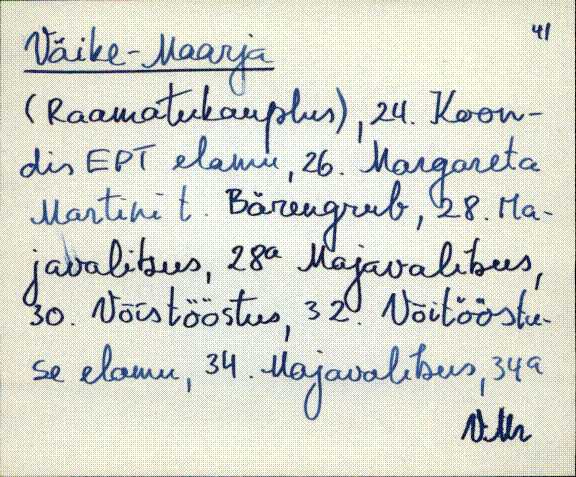 41
Väike-Maarja
(Raamatukauplus), 24. Koon-
dis EPT elamu, 26. Margareta
Martini t. Bärengrub, 28. Ma-
javalitsus, 28a Majavalitsus,
30. Võistööstus, 32. Võitööstu-
se elamu, 34. Majavalitsus, 34a